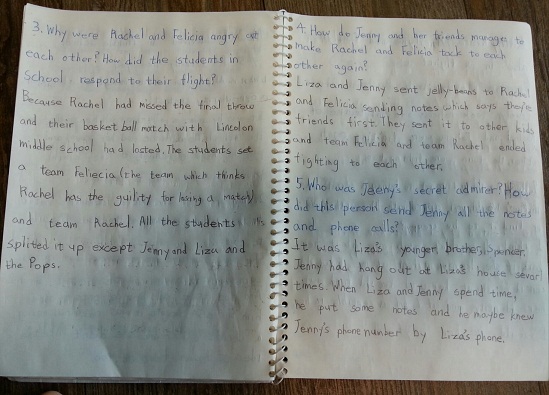 3. Why were Rachel and Felicia angry at
each other? How did the students in
School respond to their flight?
Because Rachel had missed the final throw
and their basket ball match with Lincolon
middle school had losted. The students set
a team Feliecia (the team which thinks
Rachel has the guility for losing a match)
and team Rachel. All the students
splited it up except Jenny and Liza and
the Pops.
4. How do Jenny and her friends manage to
make Rachel and Felicia tack to each
other again?
Liza and Jenny sent jelly-beans to Rachel
and Felicia sending notes which says they're
friends first. They sent it to other kids
and team Felicia and team Rachel ended
fighting to each other.
5. Who was Jeeny's secret admirer? How
did this person send Jenny all the notes
and phone calls?
It was Liza's younger brother, Spencer.
Jenny had hang out at Liza's house sevarl
times. When Liza and Jenny spend time,
he put some notes and he maybe knew
Jenny's phone number by Liza's phone.